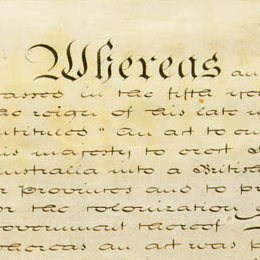 Whereas an
passed in the fifth ye
the reign of his late
intituled "An act to
his majesty to erect
Australia into a British
or provinces and to pr
for the colonization
government thereof
whereas an act was p